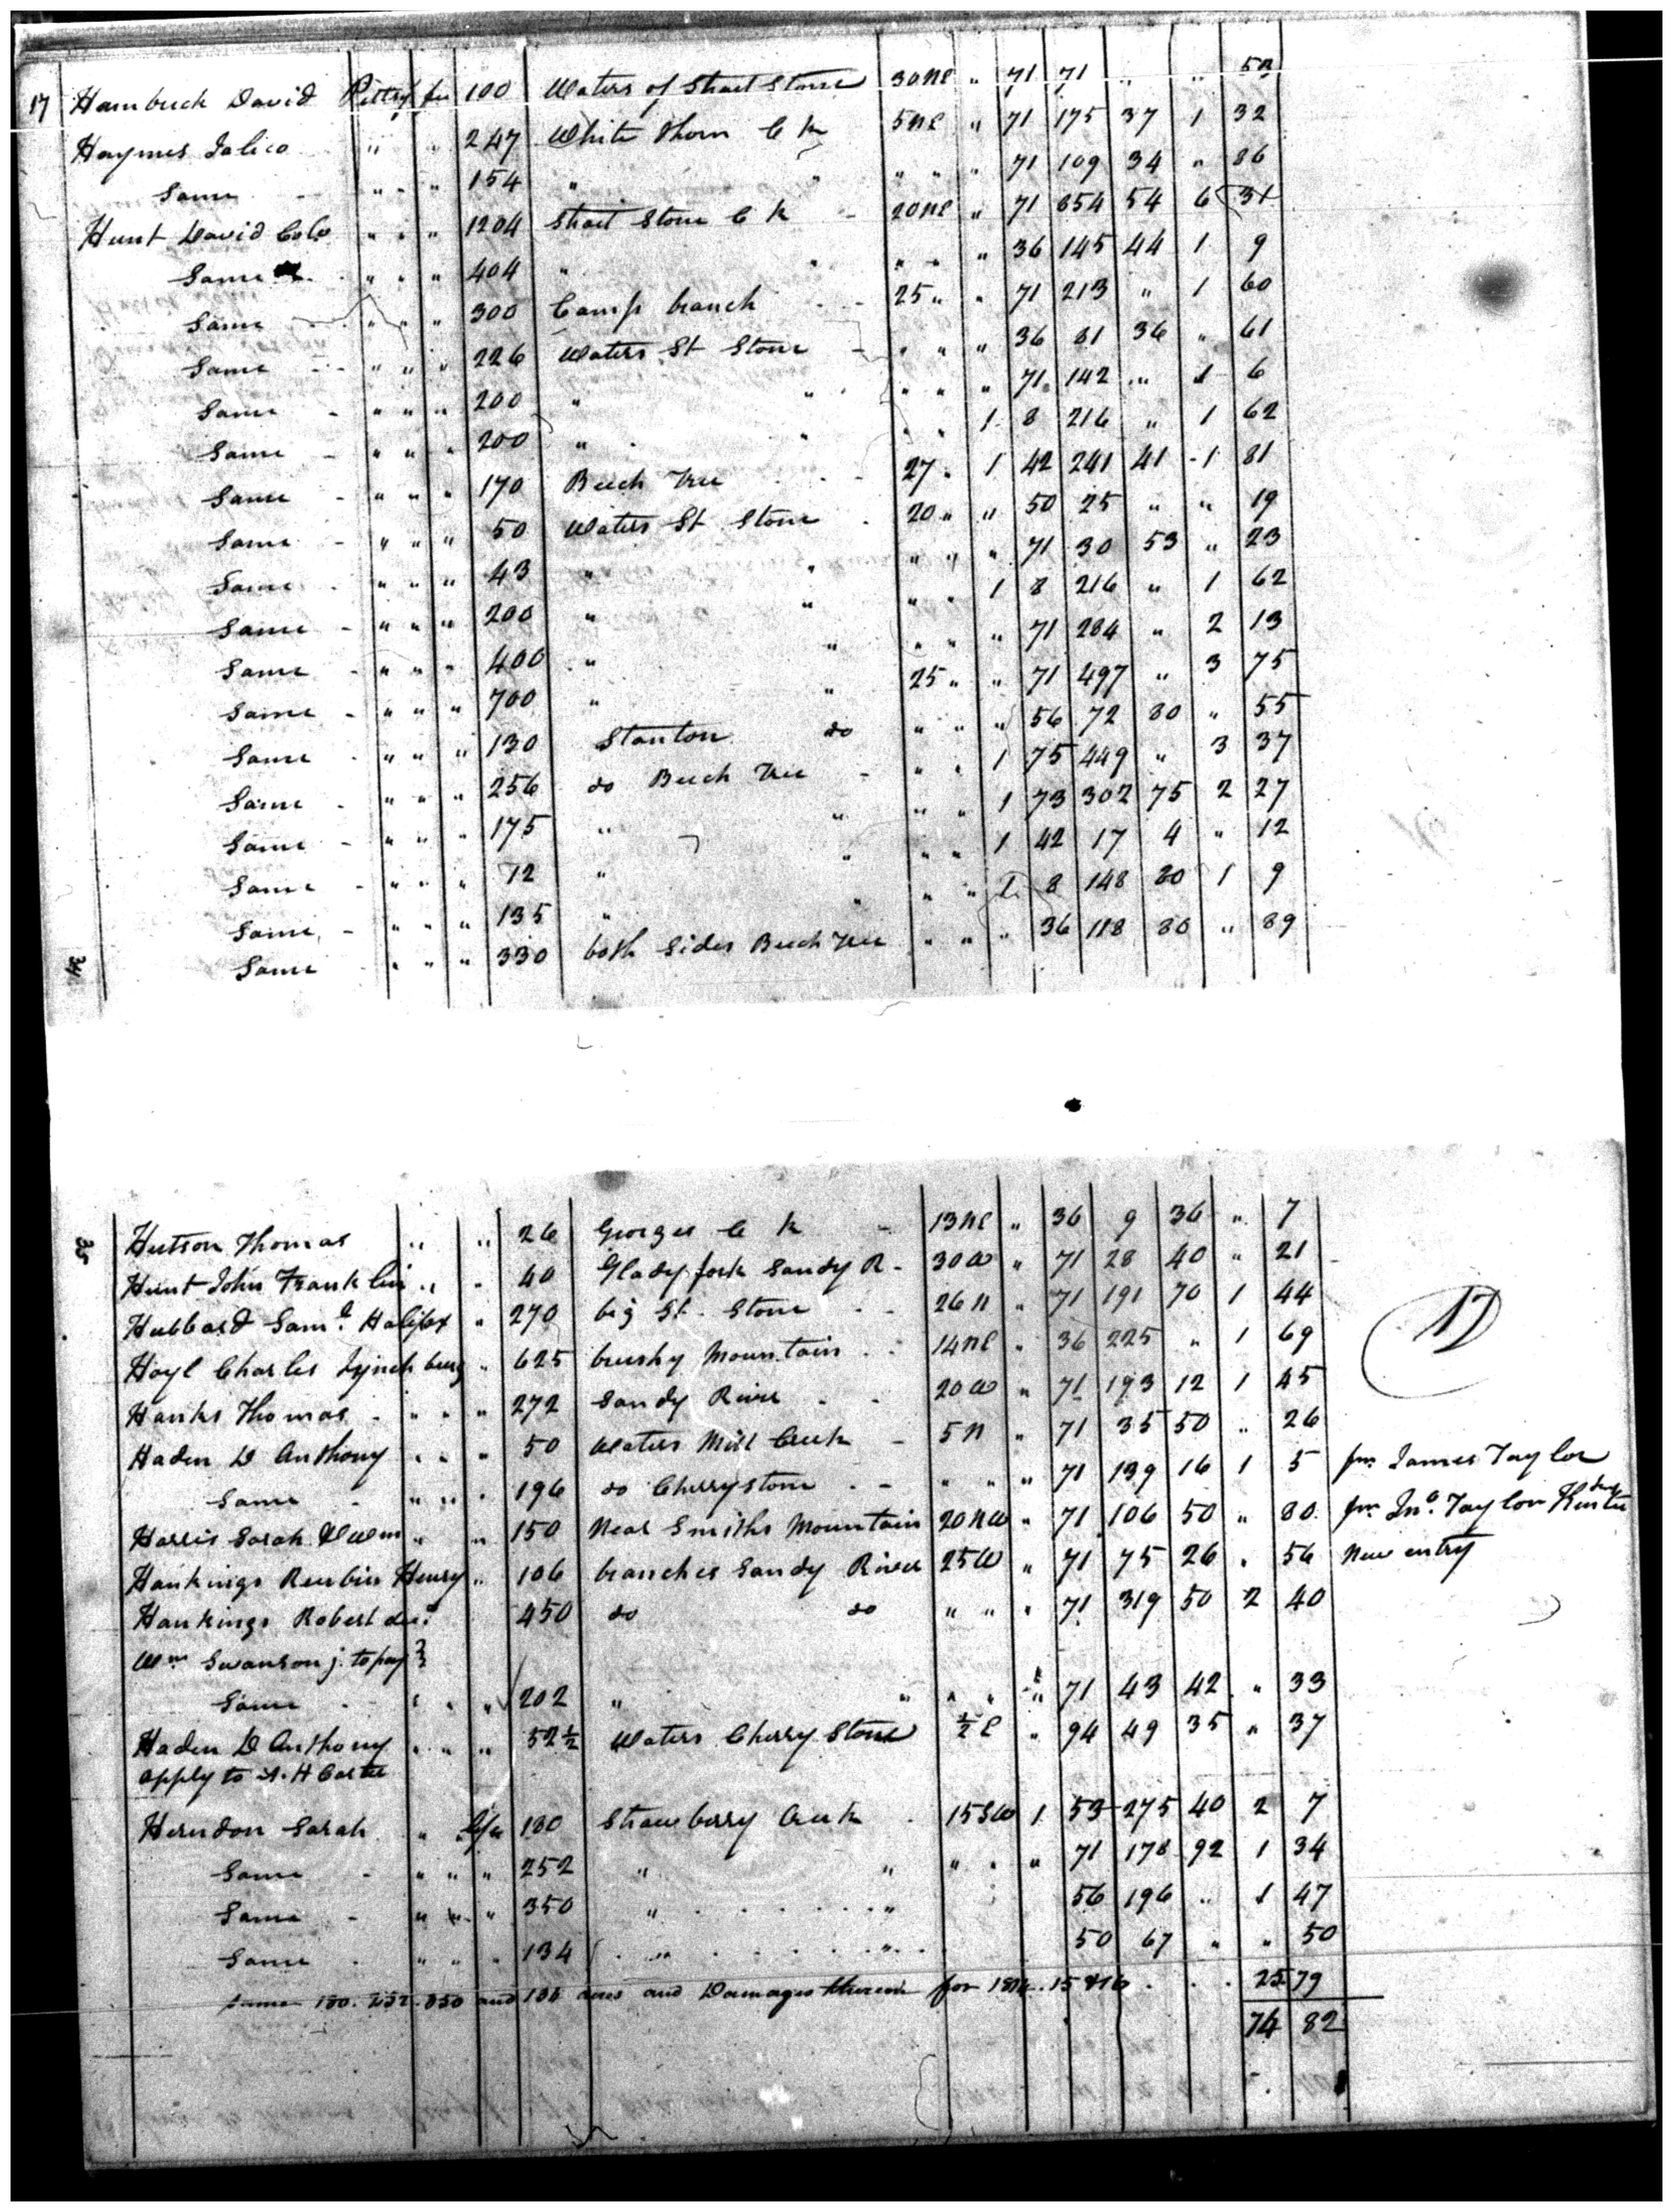 17 Hambuck David Pittsy fee 100 Waters of Strait Stone 30 NE " 71 71 " " 53
Haymes Jalico " " 247 White Thorn C k 5 NE " 71 175 37 1 32
Same " " " 154 " " " " " 71 109 34 " 86
Hunt David Colo " " " 1204 Strait Stone C k - 20 NE " 71 854 54 6 31
Same " " " 404 " " " " " 36 145 44 1 9
Same " " " 300 Camp branch - - 25 " " 71 213 " 1 60
Same - - " " " 226 Waters St Stone - " " " 36 81 36 " 61
Same - " " " 200 " " " " " 71 142 " 1 6
Same - " " " 200 " " " " 1 8 216 " 1 62
Same - " " " 170 Beech Tree - - - 27 " 1 42 241 41 - 1 81
Same - " " " 50 Waters St Stone - 20 " " 50 25 " " 19
Same - " " " 43 " " " " " 71 30 53 " 23
Same - " " " 200 " " " " 1 8 216 " 1 62
Same - " " " 400 " " " " " 71 284 " 2 13
Same - " " " 700 " " 25 " " 71 497 " 3 75
Same - " " " 130 Stanton do " " " 56 72 80 " 55
Same - " " " 256 do Beech Tree - " " 1 75 449 " 3 37
Same - " " " 175 " " " " 1 73 302 75 2 27
Same - " " " 12 " " " " 1 42 17 4 " 12
Same - " " " 135 " " " " 1 8 148 80 1 9
34 Same " " " 330 both Sides Beech Tree " " " 36 118 80 " 89
35 Hutson Thomas " " 26 Georges C k - 13 NE " 36 9 36 " 7
Hunt John Franklin " " 40 Glady fork Sandy R - 30 W " 71 28 40 " 21
Hubbard Saml. Halifax " 270 big St. Stone - - 26 N " 71 191 70 1 44
17
Hoyl Charles Lynchburg " 625 brushy Mountain - - 14 NE " 36 225 " 1 69
Hanks Thomas - " " " 272 Sandy River - - 20 W " 71 193 12 1 45
Haden D Anthony " " " 50 Waters Mill Creek - 5 N " 71 35 50 " 26
Same - " " " 196 do Cherrystone - - " " " 71 139 16 1 5 fm James Taylor
Harris Sarah & Wm " " 150 Near Smiths Mountain 20 NW " 71 106 50 " 80 fm Jno. Taylor Kentucky
Hankings Reubin Henry " 106 branches Sandy River 25 W " 71 75 26 " 56 New entry
Hankings Robert decd 450 do do " " " 71 319 50 2 40
Wm Swanson j. to pay }
Same - " " " 202 " " " " " 71 43 42 " 33
Haden D Anthony " " " 52 1/2 Waters Cherry Stone 1/2 E " 94 49 35 " 37
apply to A. H Carter
Herndon Sarah " " 180 Strawberry Creek - 15 SW 1 53 275 40 2 7
Same - " " " 252 " " " " " 71 178 92 1 34
Same - " " " 350 " " 56 196 " 1 47
Same - " " " 134 " " 50 67 " " 50
Same 180. 252. 350 and 134 acres and Damages thereon for 1814. 15 & 16 - - - 25 79
74 82